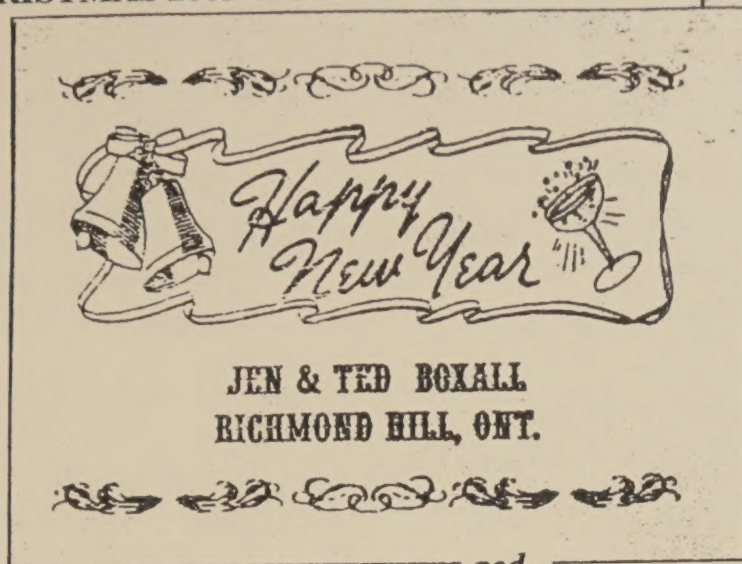 Happy
New Year
JEN & TED BOXALL
RICHMOND HILL, ONT.